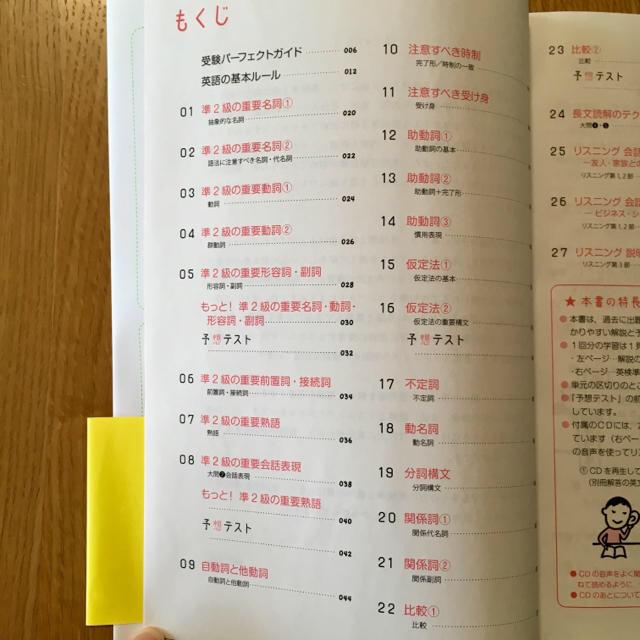 もくじ
受験パーフェクトガイド 006
英語の基本ルール 012
01 準2級の重要名詞①
抽象的な名詞 020
02 準2級の重要名詞②
語法に注意すべき名詞・代名詞 022
03 準2級の重要動詞①
動詞 024
04 準2級の重要動詞②
群動詞 026
05 準2級の重要形容詞・副詞
形容詞・副詞 028
もっと! 準2級の重要名詞・動詞・
形容詞・副詞 030
予想テスト
032
06 準2級の重要前置詞・接続詞
前置詞・接続詞 034
07 準2級の重要熟語
熟語 036
08 準2級の重要会話表現
大問❷会話表現 038
もっと! 準2級の重要熟語
040
予想テスト
042
09 自動詞と他動詞
自動詞と他動詞 044
10 注意すべき時制
完了形/時制の一致
11 注意すべき受け身
受け身
12 助動詞①
助動詞の基本
13 助動詞②
助動詞+完了形
14 助動詞③
慣用表現
15 仮定法①
仮定法の基本
16 仮定法②
仮定法の重要構文
予想テスト
17 不定詞
不定詞
18 動名詞
動名詞
19 分詞構文
分詞構文
20 関係詞①
関係代名詞
21 関係詞②
関係副詞
22 比較①
比較
23 比較②
比較
予想テスト
24 長文読解のテク
大問❹・❺
25 リスニング 会話
―友人・家族との
リスニング第1,2部
26 リスニング 会話
―ビジネス・シ
リスニング第1,2部
27 リスニング 説明
リスニング第3部
★ 本書の特長
● 本書は、過去に出題
かりやすい解説と予
● 1回分の学習は1見
・左ページ…解説の
・右ページ…英検準
● 単元の区切りのとこ
● 「予想テスト」の前
しています。
● 付属のCDには、
ています(右ペー
の音声を使ってリス
① CDを再生して
(別冊解答の英文
● CDの音声をよく聞
ねて読めるように、
● CDのあとについて